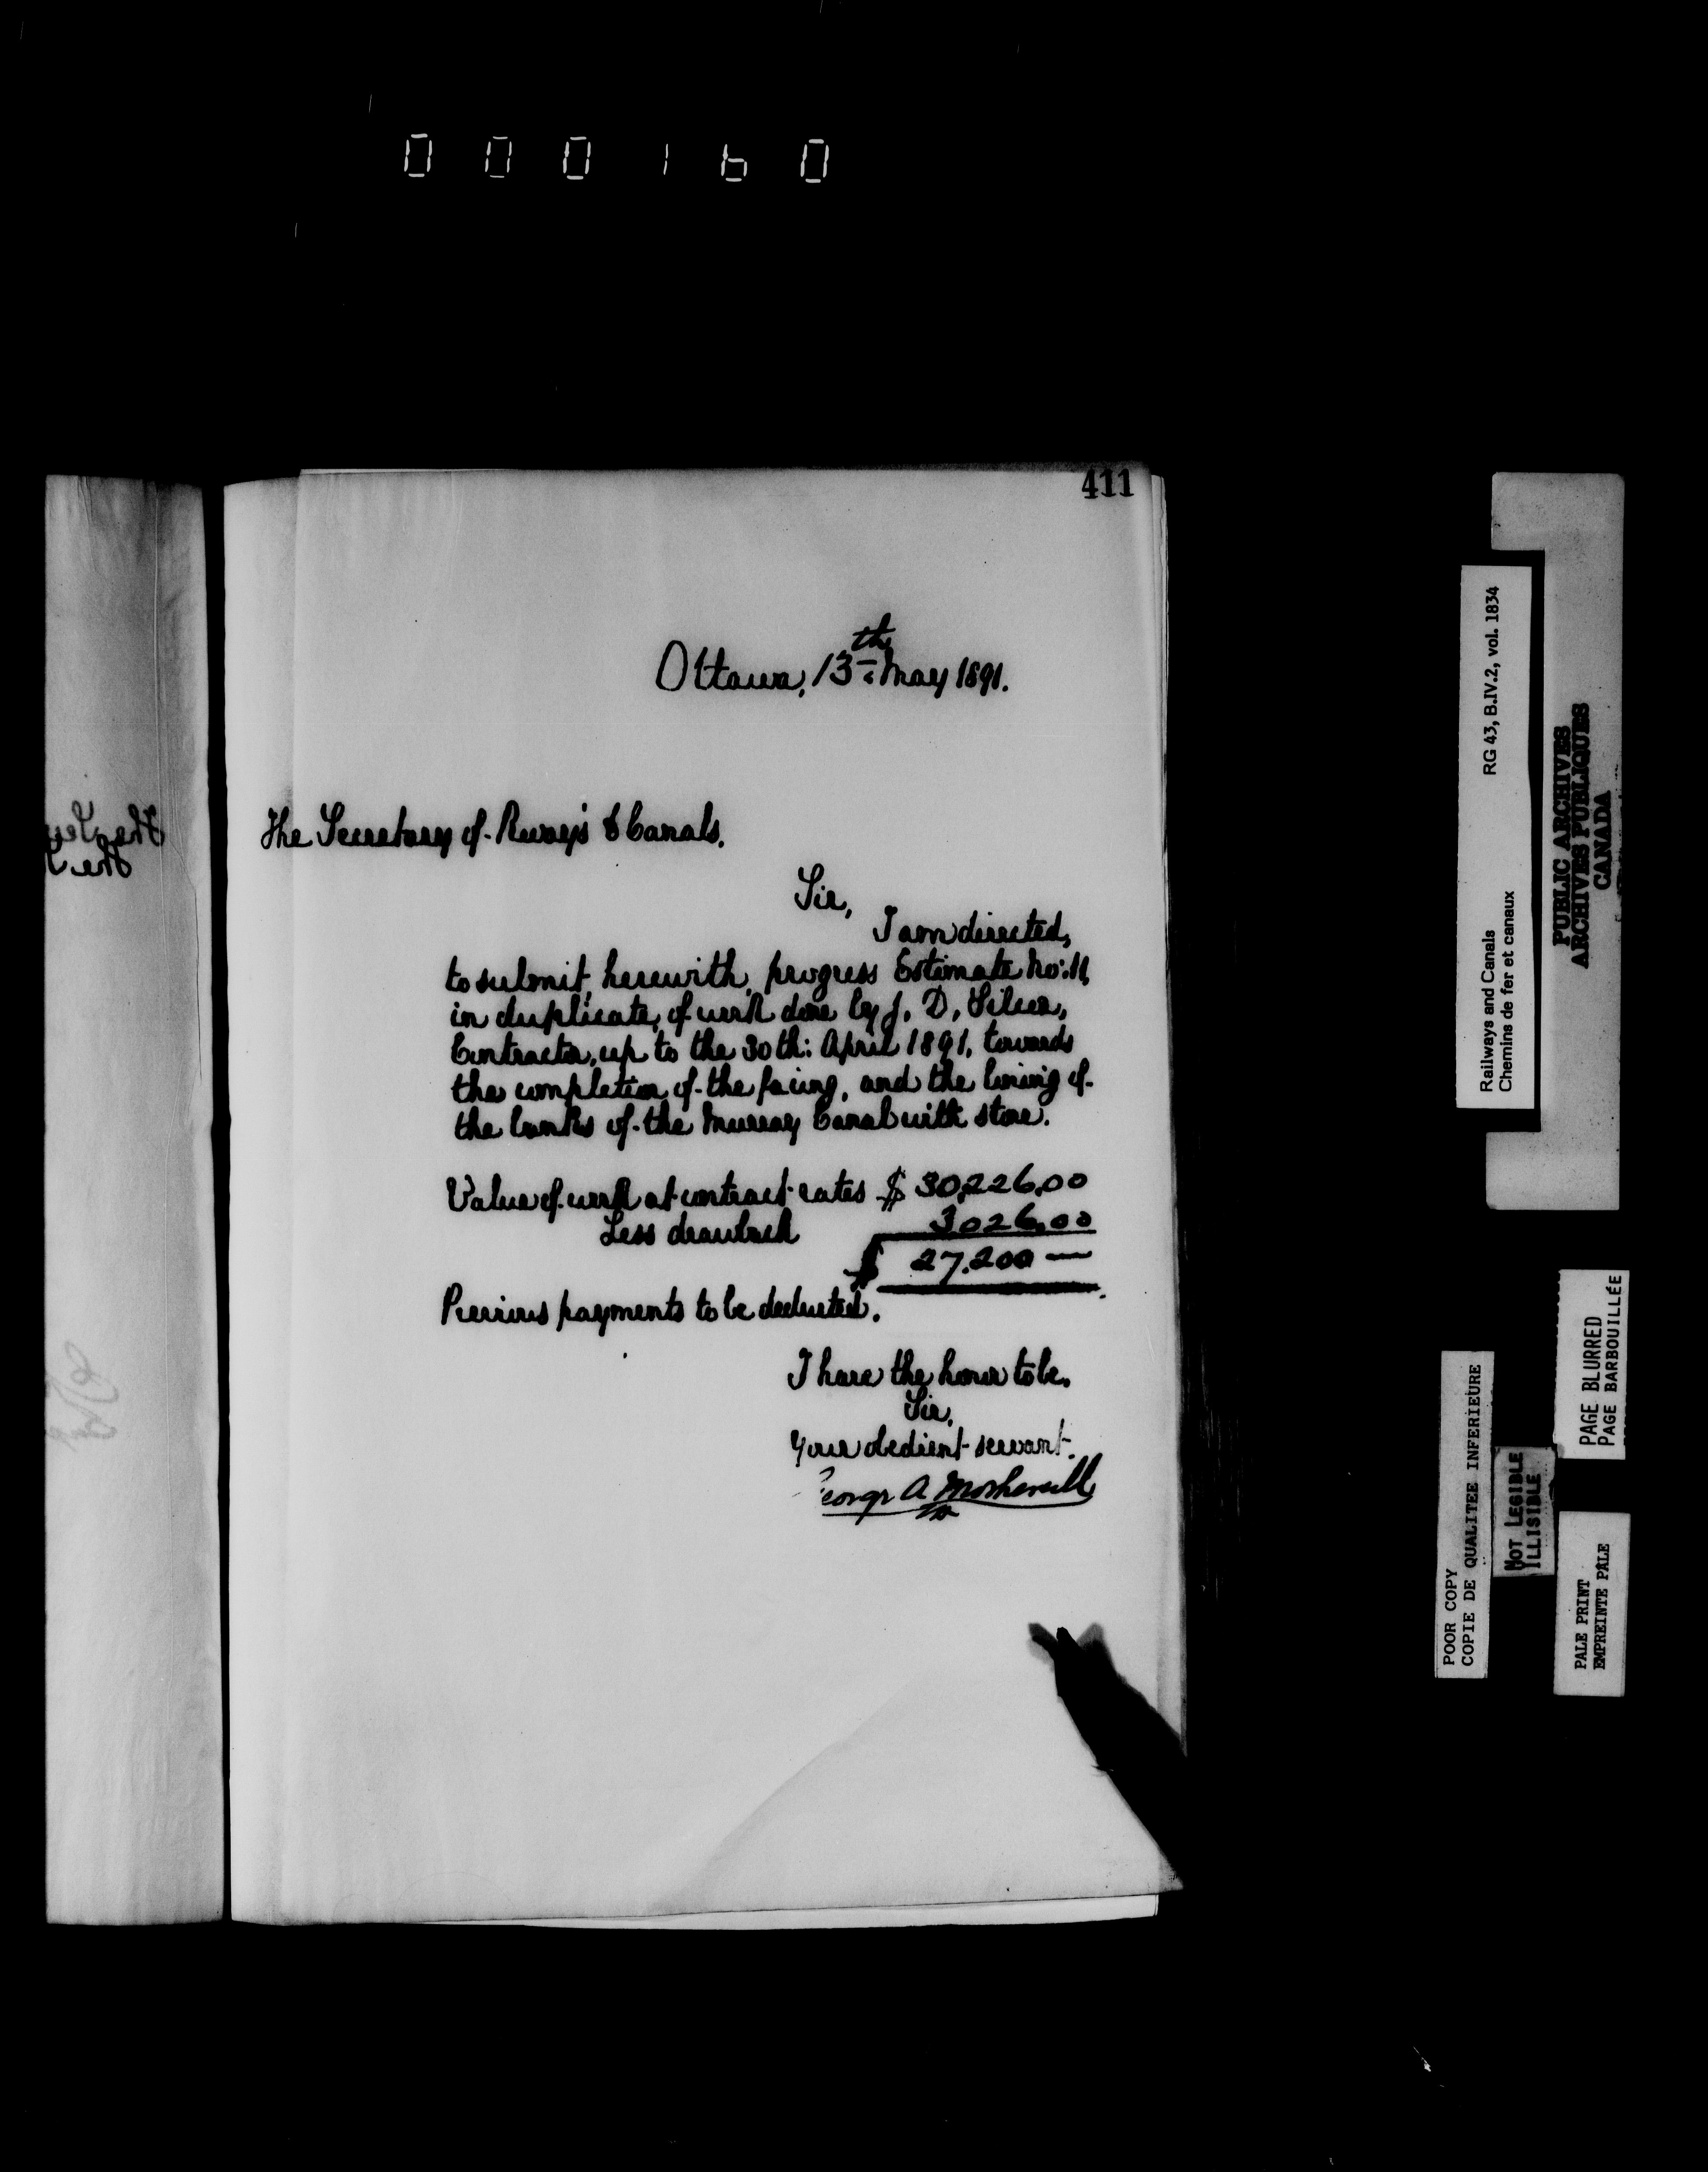 000160
411
Ottawa, 13th May 1891.
The Secretary of Rways & Canals.
Sir,
I am directed,
to submit, herewith, progress Estimate No: 11,
in duplicate, of work done by J. D. Silcox,
Contractor, up to the 30th: April 1891, towards
the completion of the facing, and the lining of
the banks of the Murray Canal with stone.
Value of work at contract rates $ 30,226.00
Less drawback 3026.00
$ 27.200 —
Previous payments to be deducted.
I have the honor to be,
Sir,
Your obedient servant.
George A
Railways and Canals RG 43, B.IV.2, vol. 1834
Chemins de fer et canaux
PUBLIC ARCHIVES
ARCHIVES PUBLIQUES
CANADA
PAGE BLURRED
PAGE BARBOUILLÉE
POOR COPY
COPIE DE QUALITEE INFERIEURE
NOT LEGIBLE
ILLISIBLE
PALE PRINT
EMPREINTE PÂLE